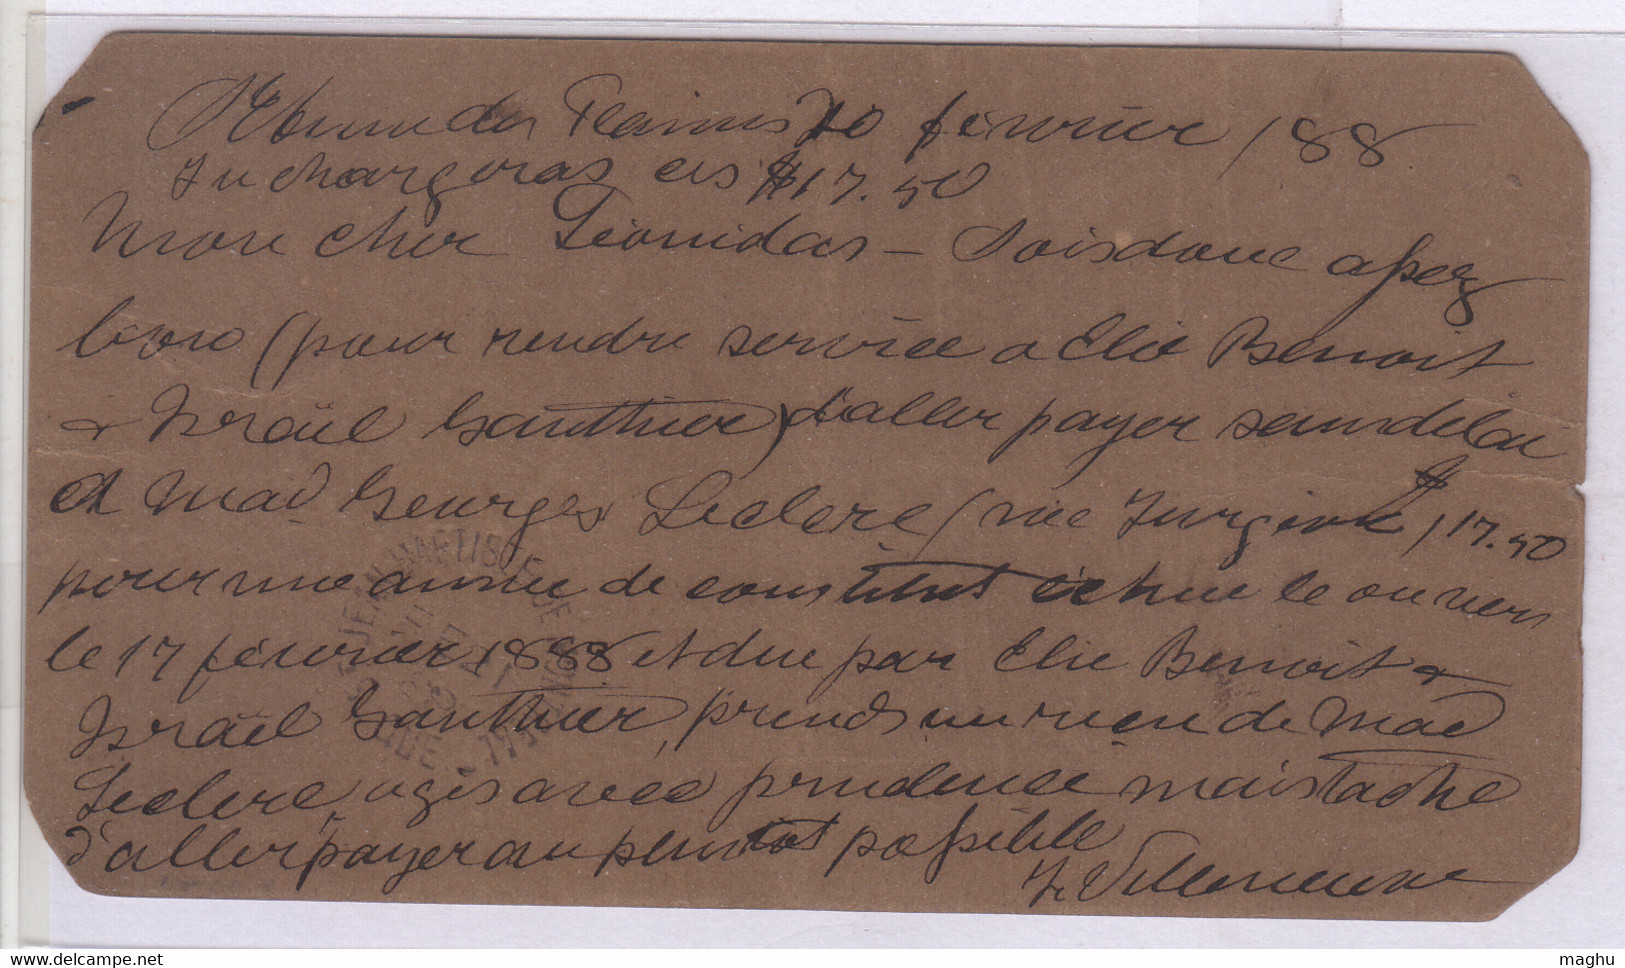 St Anne des Plaines 20 février / 88
Tu chargeras ces $17.50
Mon cher Léonidas – Sois donc assez
bon (pour rendre service a Elie Benoit
& Israël Gauthier) d'aller payer sans delai
a Mad Georges Leclerc (née Turgeon) $17.50
pour une année de constitut échue le ou vers
le 17 février 1888 et due par Elie Benoit &
Israël Gauthier, prends un reçu de Mad
Leclerc, agis avec prudence mais tache
d'aller payer au plus tot possible
Villeneuve
ST JEAN CHRYSOSTOME
maghu